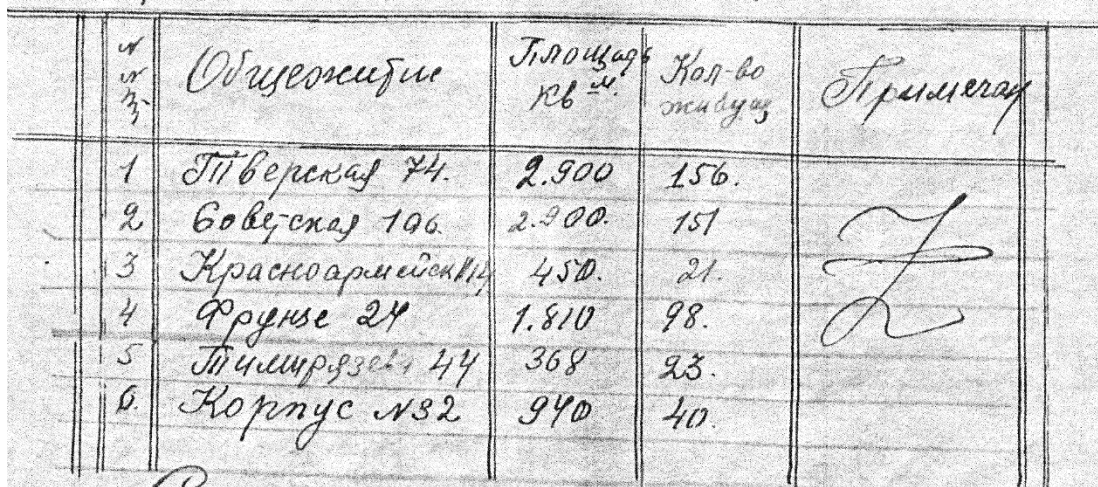 №№ Общежитие Площадь кв м. Кол-во живущ Примечан
1 Тверская 74. 2.900 156.
2 Советская 10б. 2.900. 151
3 Красноармейск 450. 21.
4 Фрунзе 24 1.810 98.
5 Тимирязева 44 368 23.
6. Корпус №32 940 40.